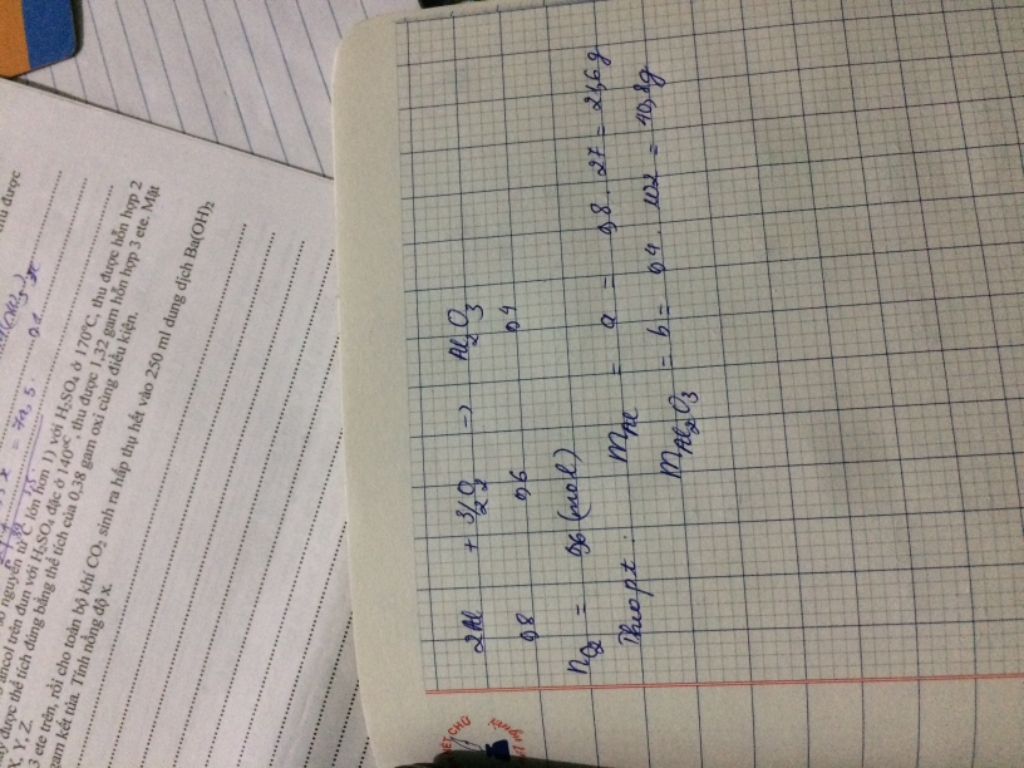 2Al + 3/2 O2 → Al2O3
0,8 0,6 0,4
nO2 = 0,6 (mol)
Theo pt : mAl = a = 0,8 . 27 = 21,6 g
mAl2O3 = b = 0,4 . 102 = 40,8g
thu được
0,1
nguyên tử C lớn hơn 1) với H2SO4 ở 170°C, thu được hỗn hợp 2
ancol trên đun với H2SO4 đặc ở 140°C, thu được 1,32 gam hỗn hợp 3 ete. Mặt
được thể tích đúng bằng thể tích của 0,38 gam oxi cùng điều kiện.
X, Y, Z.
3 ete trên, rồi cho toàn bộ khí CO2 sinh ra hấp thụ hết vào 250 ml dung dịch Ba(OH)2
gam kết tủa. Tính nồng độ x.